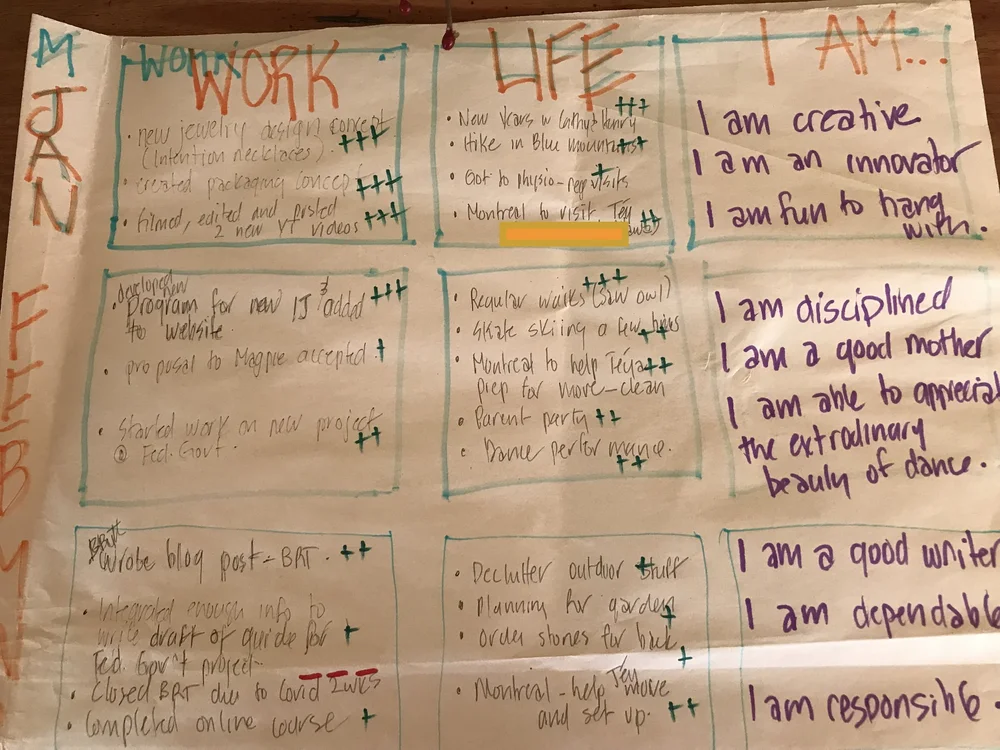 M
JAN
FEB
M
WORK
WORK
• new jewelry design concept
(intention necklaces). +++
• created packaging concept +++
• filmed, edited and posted
2 new YT videos +++
LIFE
• New Years w Cathy & Henry +++
• Hike in Blue mountains +++
• Got to physio - visits +
• Montreal to visit Téy ++
I AM...
I am creative
I am an innovator
I am fun to hang
with.
developed new
• Program for new IJ & added +++
to website
• proposal to Magpie accepted. +
• started work on new project
@ Fed. Govt. ++
• Regular walks (saw owl) +++
• Skate skiing a few times ++
• Montreal to help Téya ++
prep for move - clean
• Parent party ++
• Dance performance.
++
I am disciplined
I am a good mother
I am able to appreciat
the extrodinary
beauly of dance.
• Wrote blog post - BRT. ++
• Integrated enough info to
write draft of guide for +
Fed. Gov't project.
• Closed BRT due to Covid 2wks ---
• Completed online course +
• Declutter outdoor stuff +
• Planning for garden +
• Order stones for back
+
• Montreal - help Téy move
and set up. ++
I am a good writer
I am dependable
I am responsible.